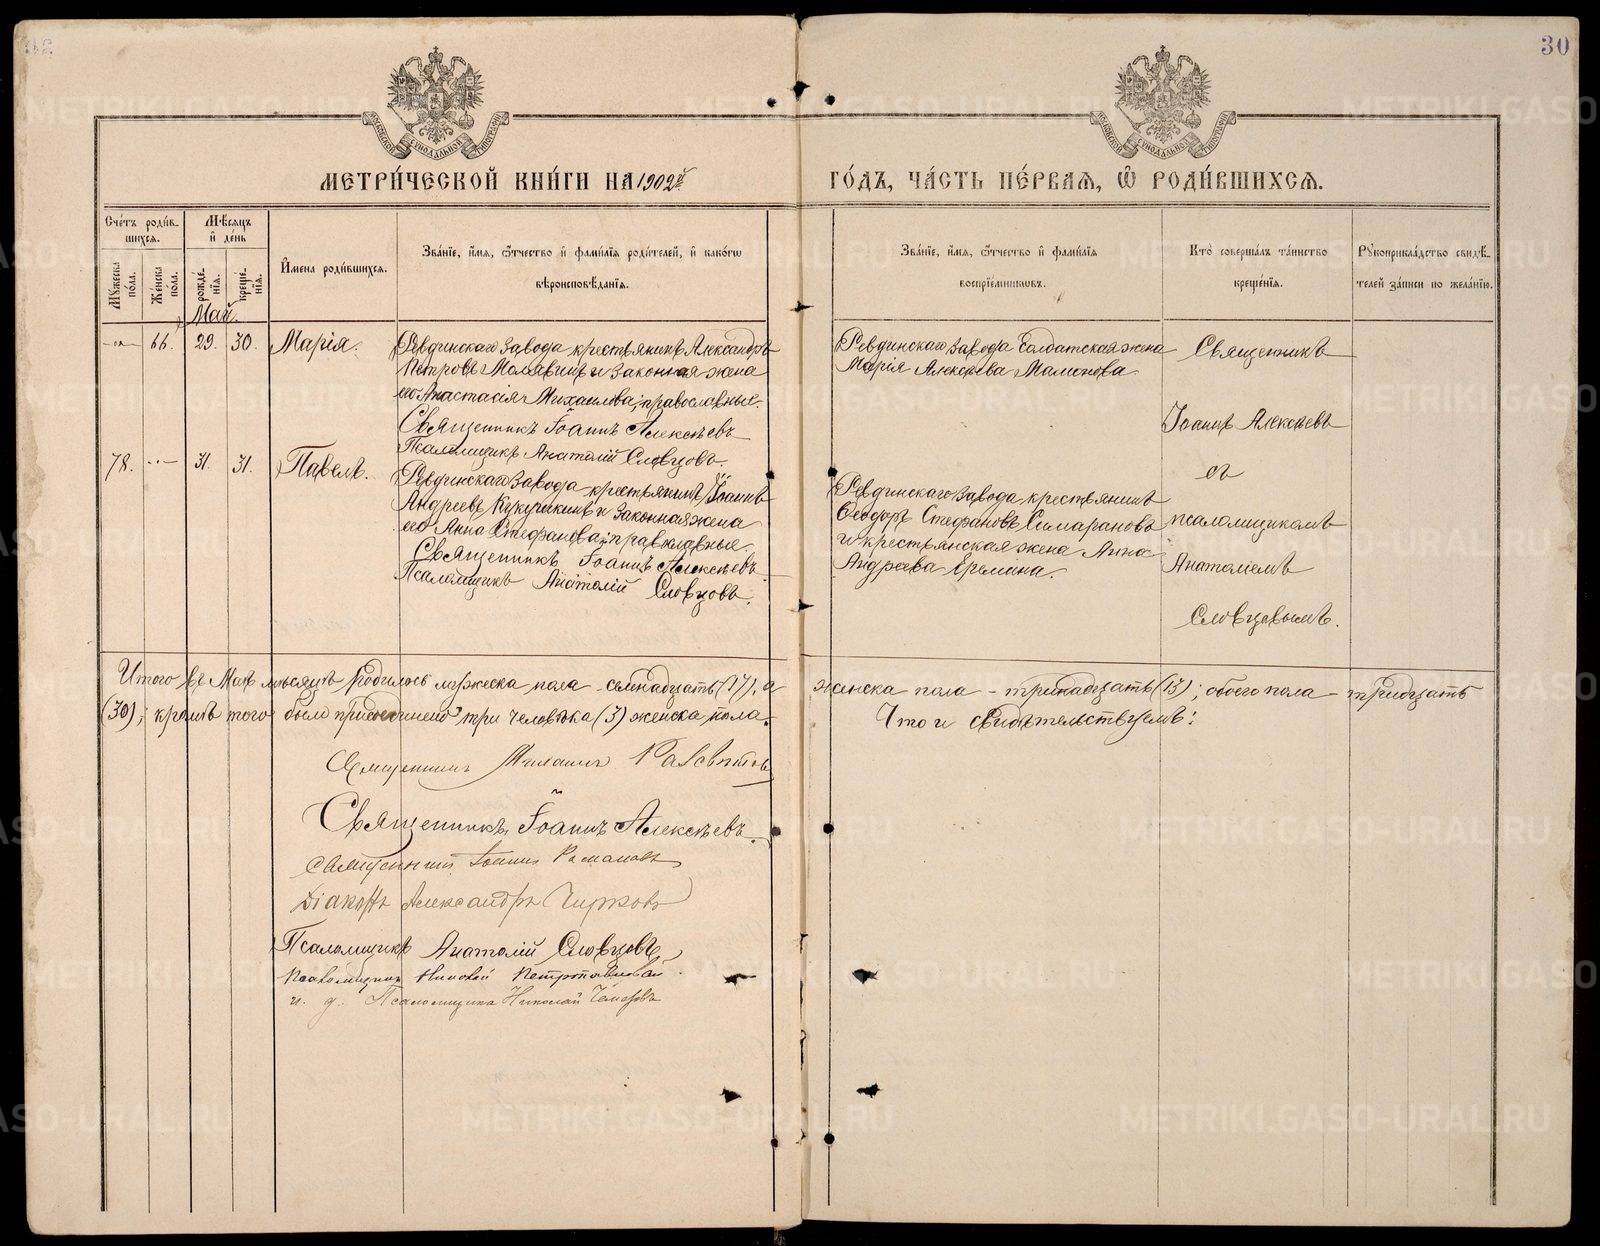 30
МЕТРИ́ЧЕСКОЙ КНИ́ГИ НА 1902й
ГО́ДЪ, ЧА́СТЬ ПЕ́РВАѦ, Ѡ҆ РОДИ́ВШИХСѦ.
Сче́тъ роди́в-
шихсѧ.
Мꙋжеска по́ла.
Же́нска пола.
Мѣ́сѧцъ
и҆ де́нь
рожде́нїѧ.
креще́нїѧ.
И҆мена роди́вшихсѧ.
Зва́нїе, и҆́мѧ, ѻ҆́тчество и҆ фами́лїѧ роди́телей, и҆ како́гѡ
вѣроисповѣ́данїѧ.
Зва́нїе, и҆́мѧ, ѻ҆́тчество и҆ фами́лїѧ
воспрїе́мникѡвъ.
Кто̀ соверша́лъ та́инство
креще́нїѧ.
Рꙋкоприкла́дство свидѣ́-
телей за́писи по жела́нїю.
Май.
66. 29. 30. Марія.
Ревдинскаго завода крестьянинъ Александръ
Петровъ Молявинъ и законная жена
его Анастасія Михаилова; православные.
Священникъ Іоаннъ Алексѣевъ
Псаломщикъ Анатолій Словцовъ.
Ревдинскаго завода солдатская жена
Марія Алексѣева Мамонова.
Священникъ
Іоаннъ Алексѣевъ
съ
псаломщикомъ
Анатоліемъ
Словцовымъ.
78. 31. 31. Павелъ.
Ревдинскаго завода крестьянинъ Іоаннъ
Андреевъ и законная жена
его Анна Стефанова; православные.
Священникъ Іоаннъ Алексѣевъ.
Псаломщикъ Анатолій Словцовъ.
Ревдинскаго завода крестьянинъ
Ѳеодоръ Стефановъ
и крестьянская жена Анна
Андреева Еремина.
Итого въ Маѣ мѣсяцѣ родилось мужеска пола - семнадцать (17), а женска пола - тринадцать (13); обоего пола - тридцать
(30); кромѣ того было присоединено три человѣка (3) женска пола. Что и свидѣтельствуемъ:
Священникъ
Священникъ Іоаннъ Алексѣевъ.
Священникъ Іоаннъ Романовъ
Діаконъ Александръ Чирковъ
Псаломщикъ Анатолій Словцовъ
Псаломщикъ
и. д. Псаломщика Николай
METRIKI.GASO-URAL.RU